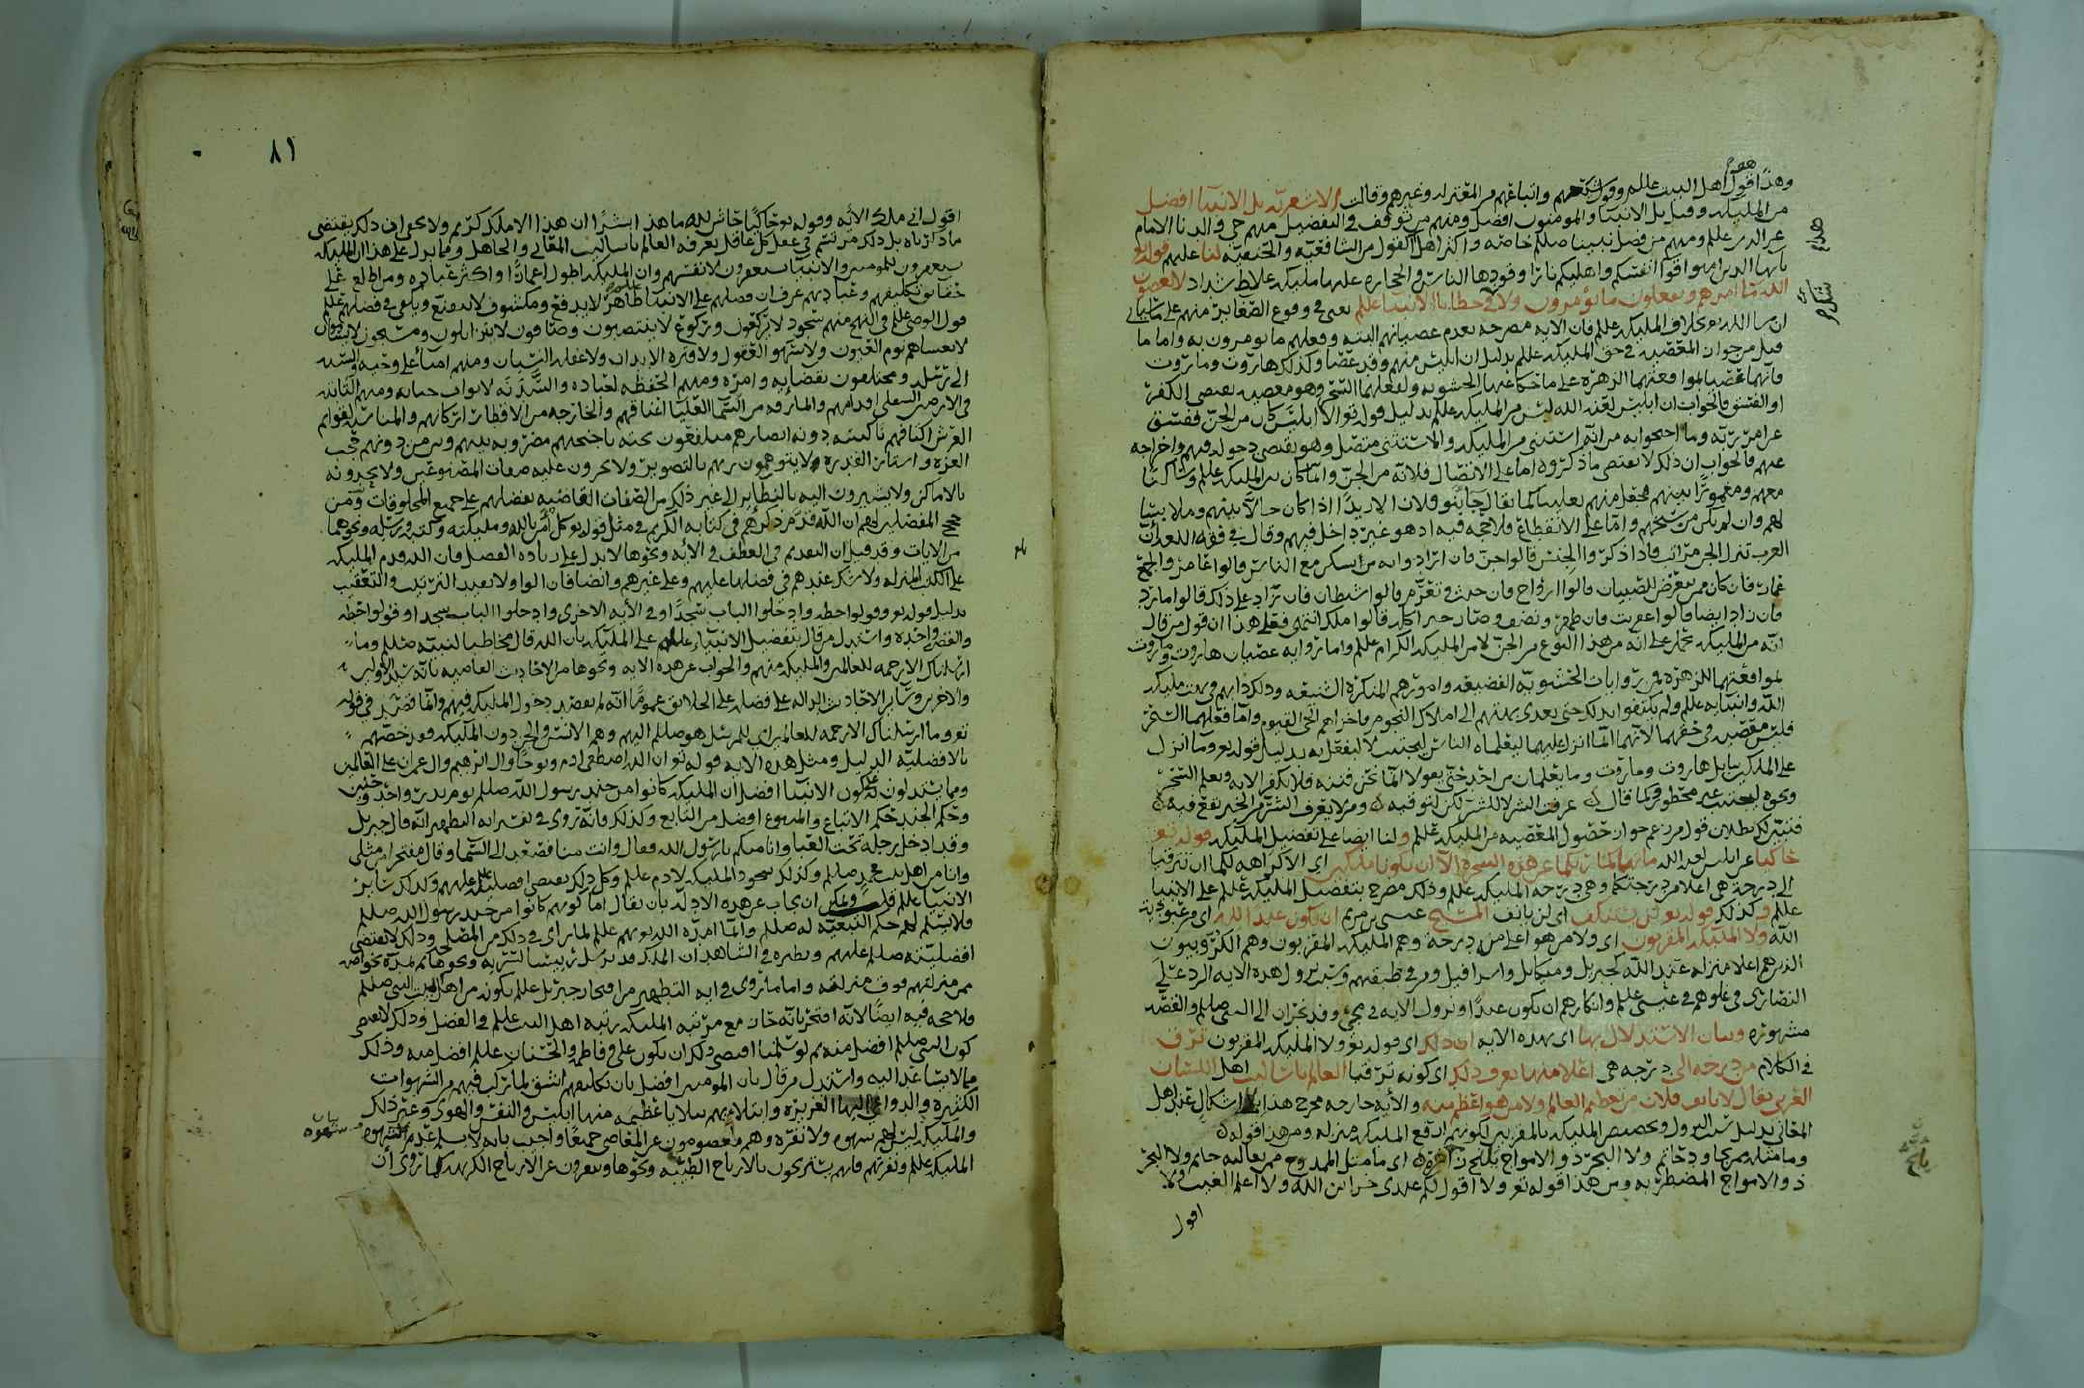 وهذا قول اهل البيت علهلم وشيعتهم واتباعهم من المعتزله وغيرهم وقالت الاشعريه بل الانبيا افضل
من المليكه وقيل بل الانبيا والمومنون افضل ومنهم من توقف في التفضيل
عز الدين علهلم ومنهم من فضل نبينا صللم خاصه واكثر اهل القول من الشافعيه والحنفيه لنا عليهم قوله تع
يايها الدين امنوا قوا انفسكم واهليكم نارًا وقودها الناس والحجاره عليها مليكه غلاظ شداد لا يعصون
الله ما امرهم ويفعلون ما يؤمرون ولا في خطايا الانبيا علهلم يعني في وقوع الصغاير منهم على
المليكه علهلم فان الايه مصرحه بعدم عصيانهم البته وفعلهم ما يومرون به واما ما
قيل من جواز المعصيه في حق المليكه علهلم بدليل ان ابليس منهم وقد عصا وكذلك هاروت وماروت
فانهما عصيا لمواقعتهما الزهره على ما حكاه عنهما الحشويه ولفعلهما السحر وهو معصيه يقتضي الكفر
او الفسق فالجواب ان ابليس لعنه الله ليس من المليكه علهلم بدليل قوله تع الا ابليس كان من الجن ففسق
عن امر ربه وما احتجوا به من انه استثنى من المليكه والاستثنى متصل وهو يقتضي دخوله فيهم واخراجه
عنهم فالجواب ان ذلك لا يقتضي ما ذكروه اما على الاتصال فلانه من الجن وانما كان بين المليكه علهلم وساكنًا
معهم ومغمورًا بينهم
لهم وان لم يكن من سنخهم واما على الانقطاع فلا حجه فيه اذ هو غير داخل فيهم وقال في فقه اللغه ان
العرب تنزل الجن مراتب فاذا ذكروا الجنس قالوا جن فان ارادوا انه من يسكن مع الناس قالوا عامر والجمع
عمار فان كان ممن يتعرض للصبيان قالوا ارواح فان خبث وتعرم قالوا شيطان فان زاد على ذلك قالوا مارد
فان زاد ايضا قالوا عفريت فان طهر ونضف وصار خيرا كله قالوا ملك انتهى فعلى هذا ان قول من قال
انه من المليكه محمول على انه من هذا النوع من الجن لا من المليكه الكرام علهلم واما رواية عصيان هاروت وماروت
لمواقعتهما للزهره فمن روايات الحشويه الفضيعه وامورهم المنكره الشنيعه وذلك دابهم في
الله وانبيايه علهلم ولم يكتفوا بذلك حتى تعدى بهتهم الى املاك النجوم
فليس معصيه في حقهما لانهما انما انزل عليهما ليعلماه الناس ليجتنب لا ليفعل به بدليل قوله تع وما انزل
على الملكين ببابل هاروت وماروت وما يعلمان من احد حتى يقولا انما نحن فتنه فلا تكفر الايه وتعلم السحر
ونحوه ليجتنب غير محظور وكما قال عرفت الشر لا للشر لكن لتوقيه ومن لا يعرف الشر من الخير يقع فيه
فتبين لك بطلان قول من زعم جواز حصول المعصيه من المليكه علهلم ولنا ايضا على تفضيل المليكه قوله تع
حاكيا عن ابليس لعنه الله ما نهاكما ربكما عن هذه الشجره الا ان تكونا ملكين اي الا كراهه لكما ان ترقيا
الى درجة هي اعلا من درجتكما وهي درجه المليكه علهلم وذلك مصرح بتفضيل المليكه علهلم على الانبيا
علهلم وكذلك قوله تع لن يستنكف اي لن يانف المسيح عيسى بن مريم ان يكون عبدا لله اي من عبودية
الله ولا المليكه المقربون اي ولا من هو اعلى منه درجه وهم المليكه المقربون وهم الكروبيون
الذين هم اعلا منزله عند الله كجبريل وميكايل واسرافيل ومن في طبقتهم وسبب نزول هذه الايه الرد على
النصارى في غلوهم في عيسى علهلم وانكارهم ان يكون عبدًا ونزول الايه في مجي وفد نجران الى النبي صللم والقصه
مشهوره وبيان الاستدلال بها اي بهذه الايه ان ذلك اي قوله تع ولا المليكه المقربون ترق
في الكلام من درجه الى درجه هي اعلا منها يعرف ذلك اي كونه ترقيا العالم باساليب اهل اللسان
العربي يقال لا يانف فلان من تعظيم العالم ولا من هو اعظم منه والايه خارجه مخرج هذا بلا اشكال عند اهل
المعاني بدليل سبب النزول وتخصيص المليكه بالمقربين لكونهم ارفع المليكه منزله ومن هذا قوله
وما مثله ممن يجاود حاتم ولا البحر ذو الامواج يلتج زاخره اي ما مثل الممدوح حاتم ولا البحر
ذو الامواج المضطربه ومن هذا قوله تع ولا اقول لكم عندي خزاين الله ولا اعلم الغيب ولا
اقول
٨١
اقول اني ملك الايه وقوله تع حاكيًا حاش لله ما هذا بشرًا ان هذا الا ملك كريم ولا يخفى ان ذلك يقتضي
ما ذكرناه بل ذلك مرتسم في عقل كل عاقل يعرفه العالم باساليب المعاني والجاهل ومما يدل على هذا ان المليكه
يستغفرون للمومنين والانبيا يستغفرون لانفسهم وان المليكه اطول اعمارًا واكثر عباده ومن اطلع على
حقايق تكليفهم وعبادتهم عرف ان فضلهم على الانبيا ظاهر لا يدفع ومكشوف لا يتقنع ويكفي في فضلهم علهلم
قول الوصي علهلم في النهج منهم سجود لا يركعون وركوع لا ينتصبون وصافون لا يتزايلون ومسبحون لا يسامون
لا يغشاهم نوم العيون ولا سهو العقول ولا فتره الابدان ولا غفله النسيان ومنهم امنا على وحيه والسنه
الى رسله ومختلفون بقضايه وامره ومنهم الحفظه لعباده والسدنه لابواب جنانه ومنهم الثابته
في الارض السفلى اقدامهم والمارقه من السما العليا اعناقهم والخارجه من الاقطار اركانهم والمناسبه لقوايم
العرش اكتافهم ناكسه دونه ابصارهم متلفعون تحته باجنحتهم مضروبه بينهم وبين من دونهم حجب
العزه واستار القدره لا يتوهمون ربهم بالتصوير ولا يجرون عليه صفات المصنوعين ولا يحدونه
بالاماكن ولا يشيرون اليه بالنظاير الى غير ذلك من الصفات القاضيه بفضلهم على جميع المخلوقات ومن
حجج المفضلين لهم ان الله قدم ذكرهم في كتابه الكريم في مثل قوله تع كل امن بالله ومليكته وكتبه ورسله ونحوها
من الايات وقد قيل ان التقديم في العطف في الايه ونحوها لا يدل على زياده الفضل فان الله قدم المليكه
على الكتب المنزله ولا شك عندهم في فضلها عليهم وعلى غيرهم وايضا فان الواو لا تفيد الترتيب والتعقيب
بدليل قوله تع وقولوا حطه وادخلوا الباب سجدًا وفي الايه الاخرى وادخلوا الباب سجدا وقولوا حطه
والقصه واحده واستدل من قال بتفضيل الانبيا علهلم على المليكه بان الله قال مخاطبا لنبيه صللم وما
ارسلناك الا رحمه للعالمين والمليكه منهم والجواب عن هذه الايه ونحوها من الاحاديث القاضيه بانه سيد الاولين
والاخرين وساير الاحاديث الداله على فضله على الخلايق عمومًا انه لم يقصد دخول المليكه فيهم وانما
تع وما ارسلناك الا رحمه للعالمين اي للمرسل هو صللم اليهم وهم الانس والجن دون المليكه
بالافضليه الدليل ومثل هذه الايه قوله تع ان الله اصطفى ادم ونوحًا وال ابرهيم وال عمران على العالمين
ومما يستدلون به على كون الانبيا افضل ان المليكه كانوا من جند رسول الله صللم يوم بدر واحد وحنين
وحكم الجند حكم الاتباع والمتبوع افضل من التابع وكذلك فانه روي في تفسير ايه التطهير انه قال جبريل
وقد ادخل رجله تحت العبا وانا منكم يا رسول الله فقال وانت منا فصعد الى السما وقال مفتخرا من مثلي
وانا من اهل بيت محمد صللم وكذلك سجود المليكه لادم علهلم وكل ذلك يقتضي افضليته عليهم وكذلك ساير
الانبيا علهلم قلت ويمكن ان يجاب عن هذه الادله بان يقال اما كونهم كانوا من جند رسول الله صللم
فلا يسلم لهم حكم التبعيه له صللم وانما امره الله تع بهم علهلم لما راى في ذلك من المصلحه وذلك لا يقتضي
افضليته صللم عليهم ونظيره في الشاهد ان الملك قد يرسل رييسا لسريه ونحوها
ممن منزلتهم فوق منزلته واما ما روي في ايه التطهير من افتخار جبريل علهلم بكونه من اهل بيت النبي صللم
فلا حجه فيه ايضًا لانه افتخر بانه حاز مع مرتبه المليكه رتبه اهل البيت علهلم في الفضل وذلك لا يقتضي
كون النبي صللم افضل منه ثم لو سلمنا اقتضى ذلك ان يكون علي وفاطمه والحسنان علهلم افضل منه وذلك
مما لا يساعد اليه واستدل من قال بان المومنين افضل بان تكليفهم اشق لما ركب فيهم من الشهوات
الكثيره والدواعي اليها الغزيره وابتلاهم ببلايا عظيمه منها ابليس والنفس والهوى وغير ذلك
والمليكه ليس لهم شهوه ولا نفره وهم معصومون عن المعاصي جميعًا واجيب بانه لا يسلم عدم شهوه
المليكه علهلم ونفرتهم فانهم يستريحون بالارياح الطيبه ونحوها وينفرون عن الارياح الكريهه كما روي ان